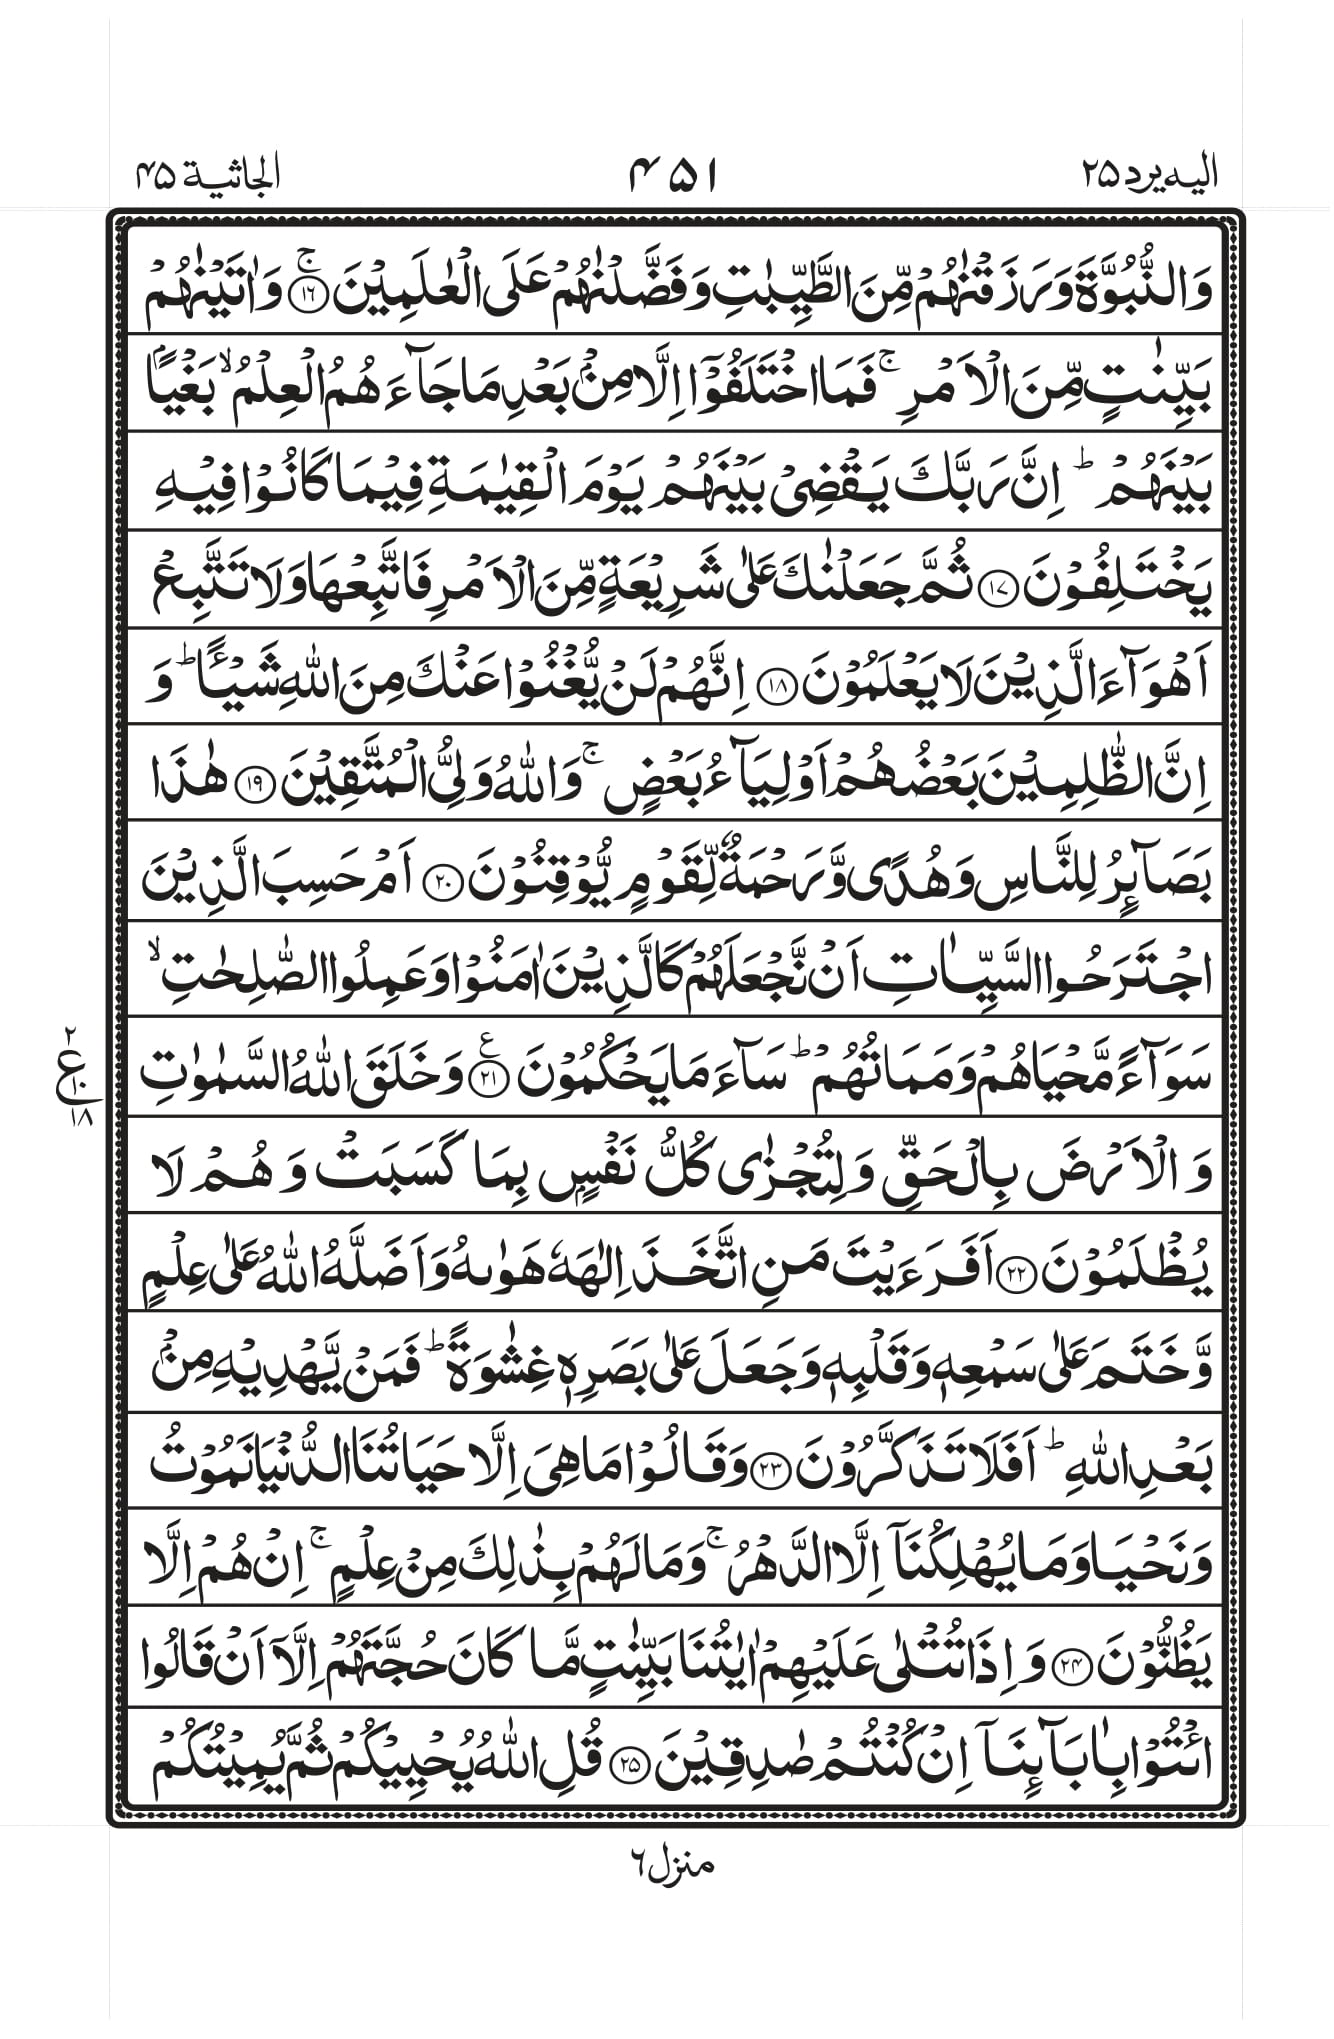 اليه يرد ۲۵
۴۵۱
الجاثية ۴۵
وَالنُّبُوَّةَ وَرَزَقۡنٰهُمۡ مِّنَ الطَّيِّبٰتِ وَفَضَّلۡنٰهُمۡ عَلَى الۡعٰلَمِيۡنَ ۚ‏﴿۱۶﴾ وَاٰتَيۡنٰهُمۡ
بَيِّنٰتٍ مِّنَ الۡاَمۡرِ‌ ۚ فَمَا اخۡتَلَفُوۡۤا اِلَّا مِنۡۢ بَعۡدِ مَا جَآءَ هُمُ الۡعِلۡمُ ۙ بَغۡيًاۢ
بَيۡنَهُمۡ‌ ؕ اِنَّ رَبَّكَ يَقۡضِىۡ بَيۡنَهُمۡ يَوۡمَ الۡقِيٰمَةِ فِيۡمَا كَانُوۡا فِيۡهِ
يَخۡتَلِفُوۡنَ ﴿۱۷﴾ ثُمَّ جَعَلۡنٰكَ عَلٰى شَرِيۡعَةٍ مِّنَ الۡاَمۡرِ فَاتَّبِعۡهَا وَلَا تَتَّبِعۡ
اَهۡوَآءَ الَّذِيۡنَ لَا يَعۡلَمُوۡنَ ﴿۱۸﴾ اِنَّهُمۡ لَنۡ يُّغۡنُوۡا عَنۡكَ مِنَ اللّٰهِ شَيۡــًٔـا‌ ؕ وَ
اِنَّ الظّٰلِمِيۡنَ بَعۡضُهُمۡ اَوۡلِيَآءُ بَعۡضٍ‌ ۚ وَاللّٰهُ وَلِىُّ الۡمُتَّقِيۡنَ ﴿۱۹﴾ هٰذَا
بَصَآئِرُ لِلنَّاسِ وَهُدًى وَّرَحۡمَةٌ لِّقَوۡمٍ يُّوۡقِنُوۡنَ ﴿۲۰﴾ اَمۡ حَسِبَ الَّذِيۡنَ
اجۡتَـرَحُوا السَّيِّاٰتِ اَنۡ نَّجۡعَلَهُمۡ كَالَّذِيۡنَ اٰمَنُوۡا وَعَمِلُوا الصّٰلِحٰتِ ۙ
سَوَآءً مَّحۡيَاهُمۡ وَمَمَاتُهُمۡ‌ ؕ سَآءَ مَا يَحۡكُمُوۡنَ ﴿۲۱﴾ ع وَخَلَقَ اللّٰهُ السَّمٰوٰتِ
۲ ع ۱۰ ۱۸
وَ الۡاَرۡضَ بِالۡحَقِّ وَلِتُجۡزٰى كُلُّ نَفۡسٍۢ بِمَا كَسَبَتۡ وَهُمۡ لَا
يُظۡلَمُوۡنَ ﴿۲۲﴾ اَفَرَءَيۡتَ مَنِ اتَّخَذَ اِلٰهَهٗ هَوٰٮهُ وَاَضَلَّهُ اللّٰهُ عَلٰى عِلۡمٍ
وَّخَتَمَ عَلٰى سَمۡعِهٖ وَقَلۡبِهٖ وَجَعَلَ عَلٰى بَصَرِهٖ غِشٰوَةً ؕ فَمَنۡ يَّهۡدِيۡهِ مِنۡۢ
بَعۡدِ اللّٰهِ‌ ؕ اَفَلَا تَذَكَّرُوۡنَ ﴿۲۳﴾ وَقَالُوۡا مَا هِىَ اِلَّا حَيَاتُنَا الدُّنۡيَا نَمُوۡتُ
وَنَحۡيَا وَمَا يُهۡلِكُنَاۤ اِلَّا الدَّهۡرُ‌ ۚ وَمَا لَهُمۡ بِذٰلِكَ مِنۡ عِلۡمٍ‌ ۚ اِنۡ هُمۡ اِلَّا
يَظُنُّوۡنَ ﴿۲۴﴾ وَاِذَا تُتۡلٰى عَلَيۡهِمۡ اٰيٰتُنَا بَيِّنٰتٍ مَّا كَانَ حُجَّتَهُمۡ اِلَّاۤ اَنۡ قَالُوا
ائۡتُوۡا بِاٰبَآئِنَاۤ اِنۡ كُنۡتُمۡ صٰدِقِيۡنَ ﴿۲۵﴾ قُلِ اللّٰهُ يُحۡيِيۡكُمۡ ثُمَّ يُمِيۡتُكُمۡ
منزل ۶